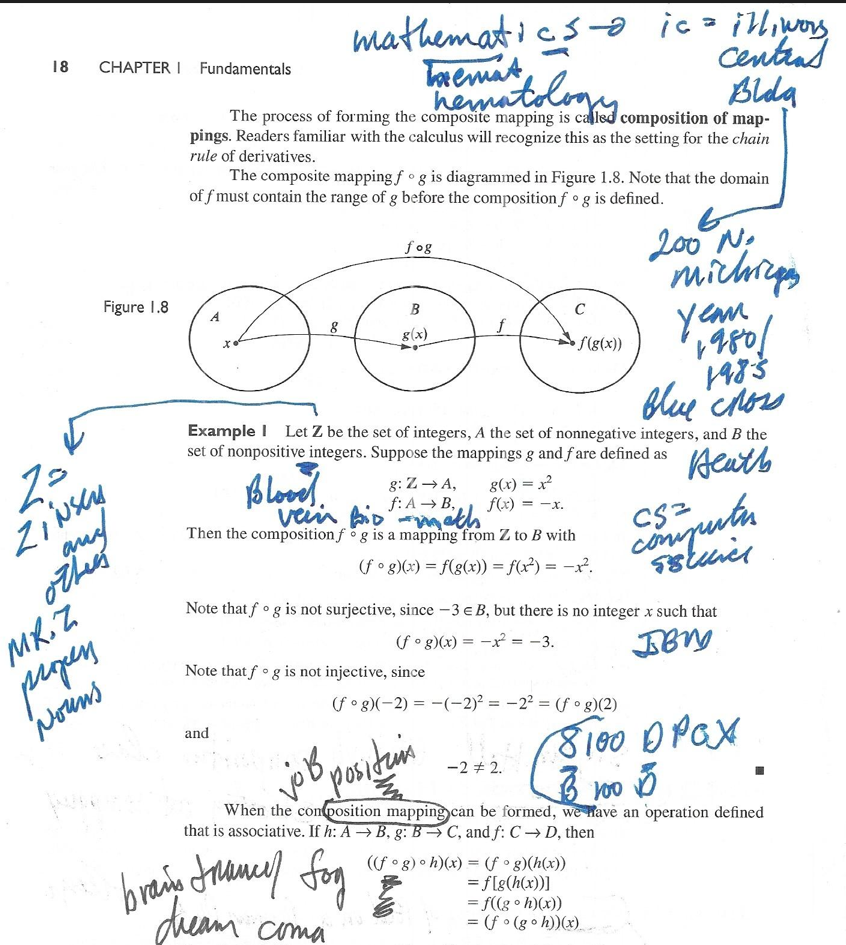 mathematics → ic = illinois
central
Bldg
hemat
hematology
18 CHAPTER I Fundamentals
The process of forming the composite mapping is called composition of map-
pings. Readers familiar with the calculus will recognize this as the setting for the chain
rule of derivatives.
The composite mapping f ∘ g is diagrammed in Figure 1.8. Note that the domain
of f must contain the range of g before the composition f ∘ g is defined.
200 N.
michigan
year
1980/
1985
Blue cross
Figure 1.8
f∘g
A
B
C
x
g
g(x)
f
f(g(x))
Example 1 Let Z be the set of integers, A the set of nonnegative integers, and B the
set of nonpositive integers. Suppose the mappings g and f are defined as
g: Z → A, g(x) = x²
f: A → B, f(x) = −x.
Heath
Blood
vein Bio - math
Z =
and
others
MR. Z
proper
Nouns
Then the composition f ∘ g is a mapping from Z to B with
(f ∘ g)(x) = f(g(x)) = f(x²) = −x².
CS =
computer
Note that f ∘ g is not surjective, since −3 ∈ B, but there is no integer x such that
(f ∘ g)(x) = −x² = −3.
IBM
Note that f ∘ g is not injective, since
(f ∘ g)(−2) = −(−2)² = −2² = (f ∘ g)(2)
and
−2 ≠ 2.
8100 DPCX
B 100 D
job position
When the composition mapping can be formed, we have an operation defined
that is associative. If h: A → B, g: B → C, and f: C → D, then
((f ∘ g) ∘ h)(x) = (f ∘ g)(h(x))
= f[g(h(x))]
= f((g ∘ h)(x))
= (f ∘ (g ∘ h))(x)
brain trance/ fog
dream coma